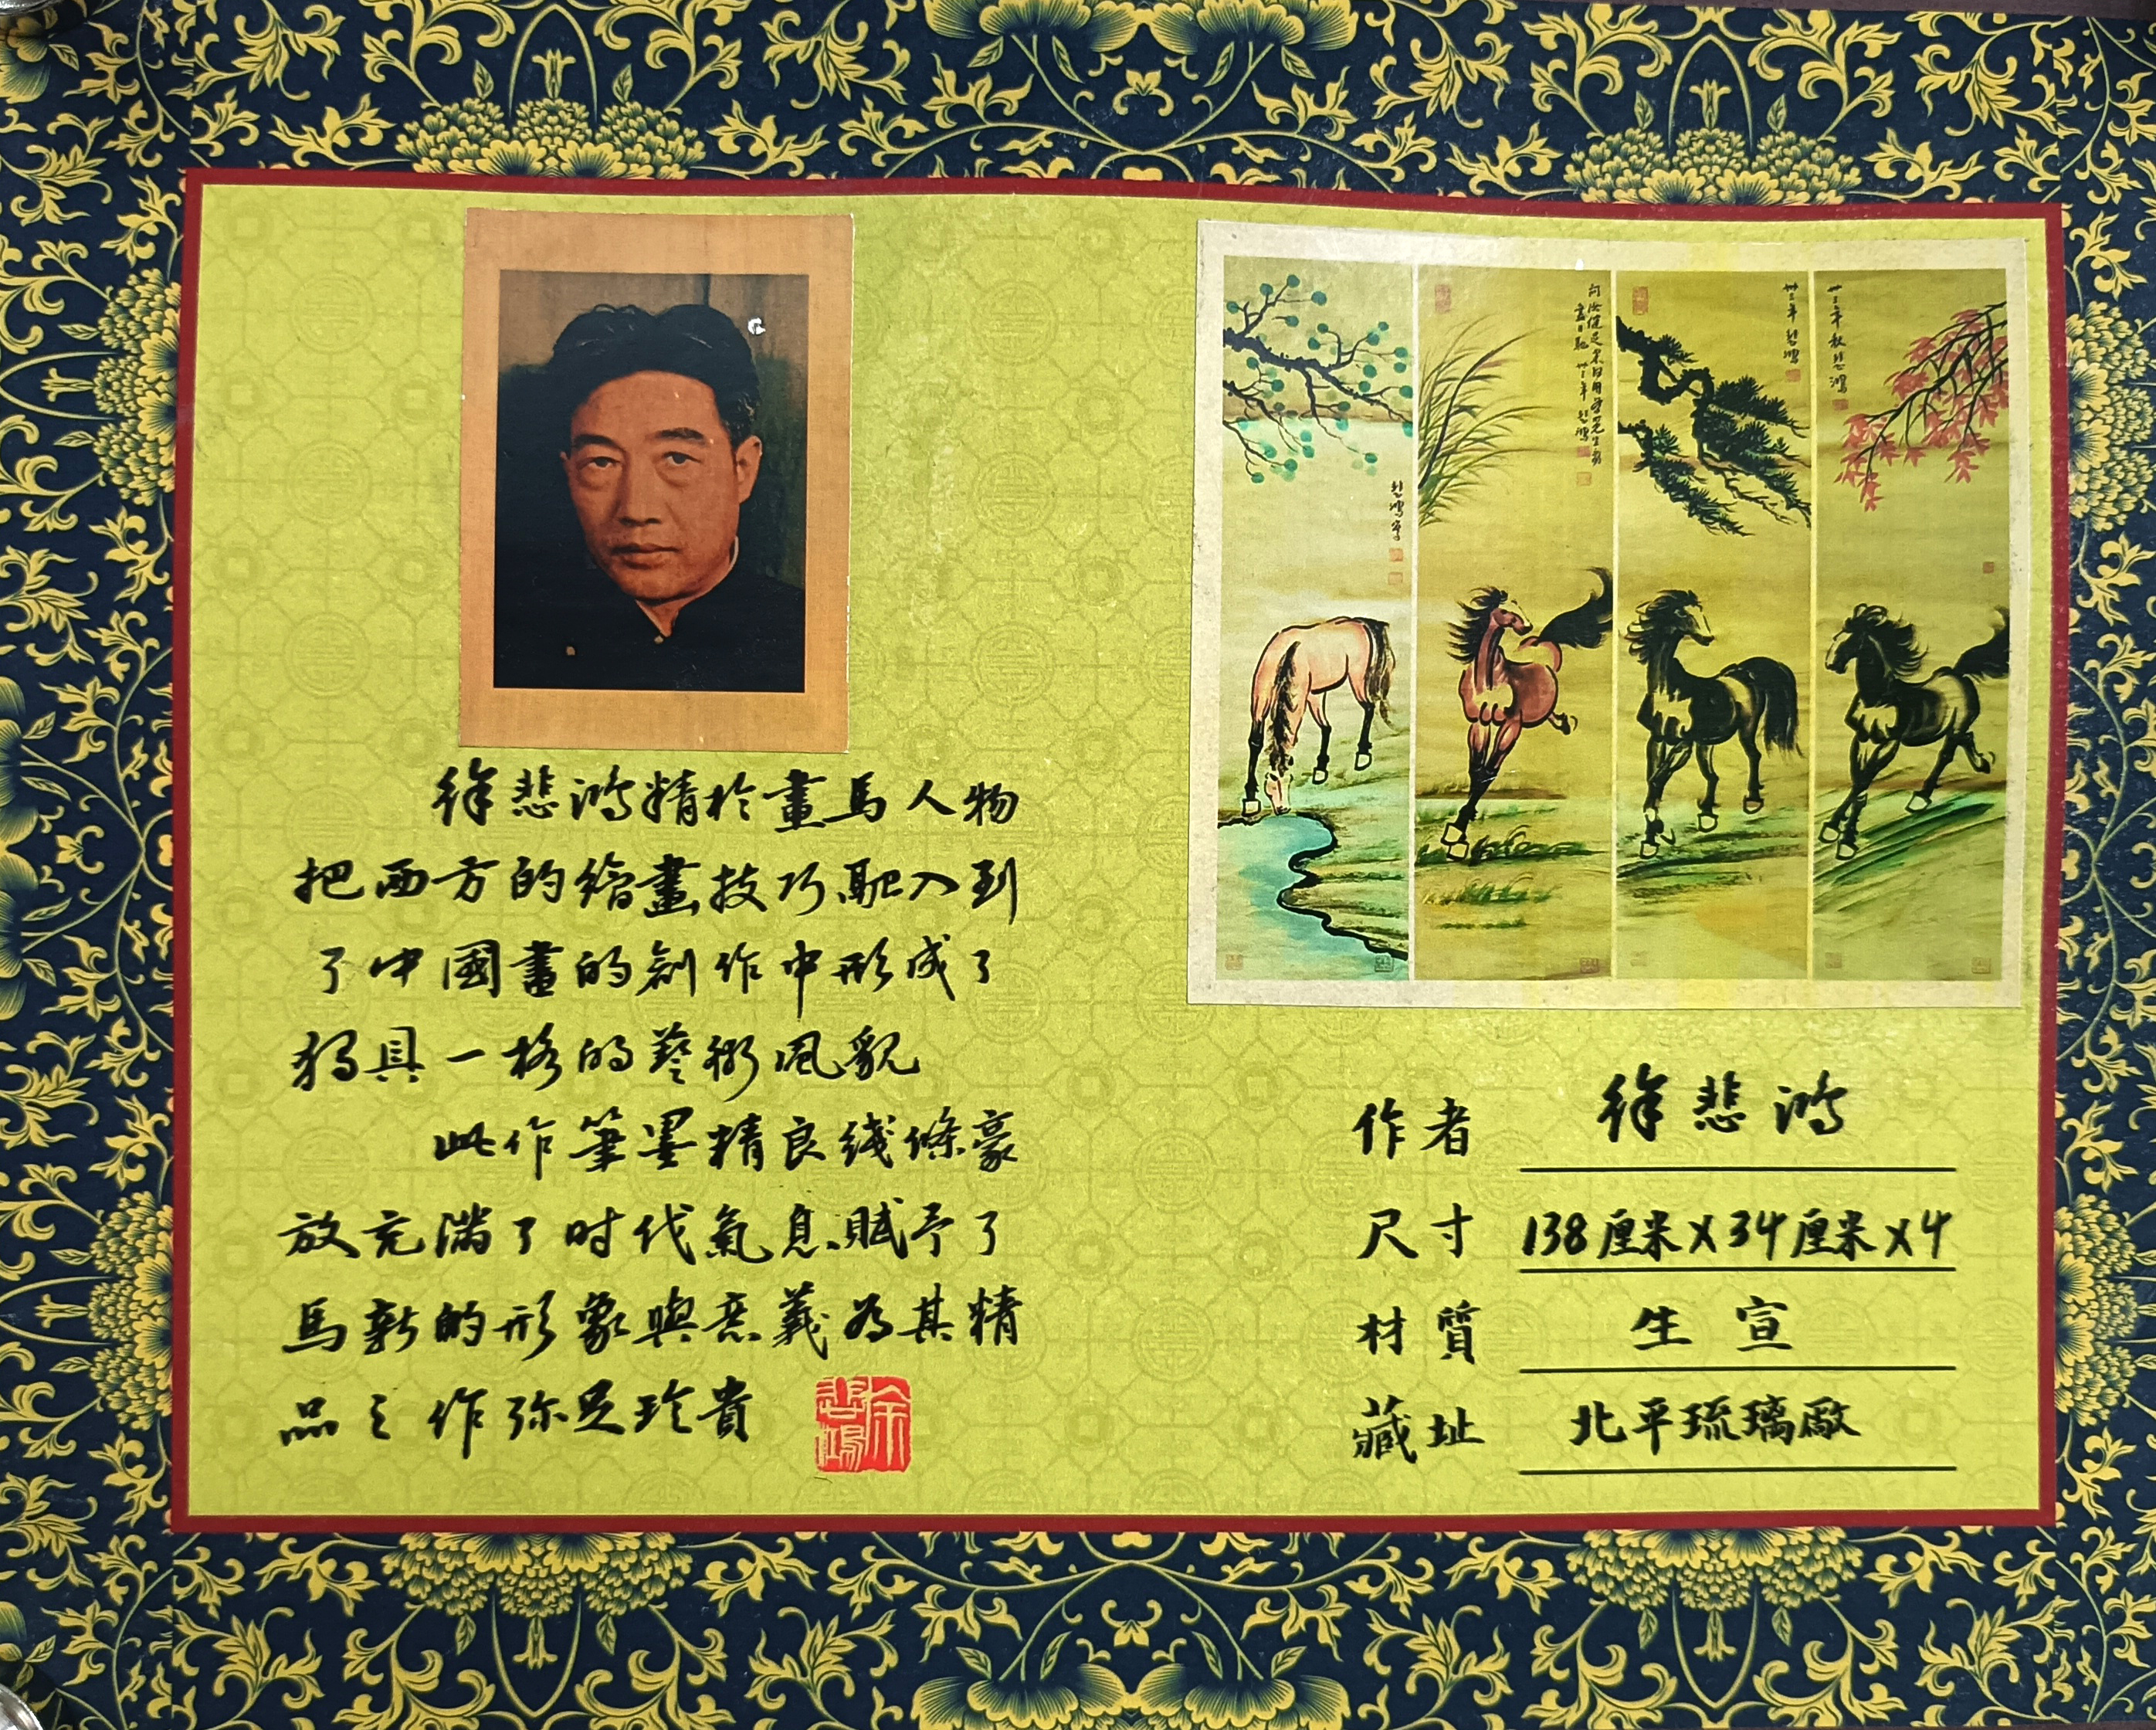 徐悲鴻精於畫馬人物
把西方的繪畫技巧融入到
了中國畫的創作中形成了
獨具一格的藝術風貌
此作筆墨精良线條豪
放充满了时代氣息賦予了
馬新的形象與意義為其精
品之作弥足珍貴
徐悲鴻
卅三年 悲鴻
卅三年秋 悲鴻
悲鴻寫
作者 徐悲鴻
尺寸 138厘米X34厘米X4
材質 生宣
藏址 北平琉璃廠